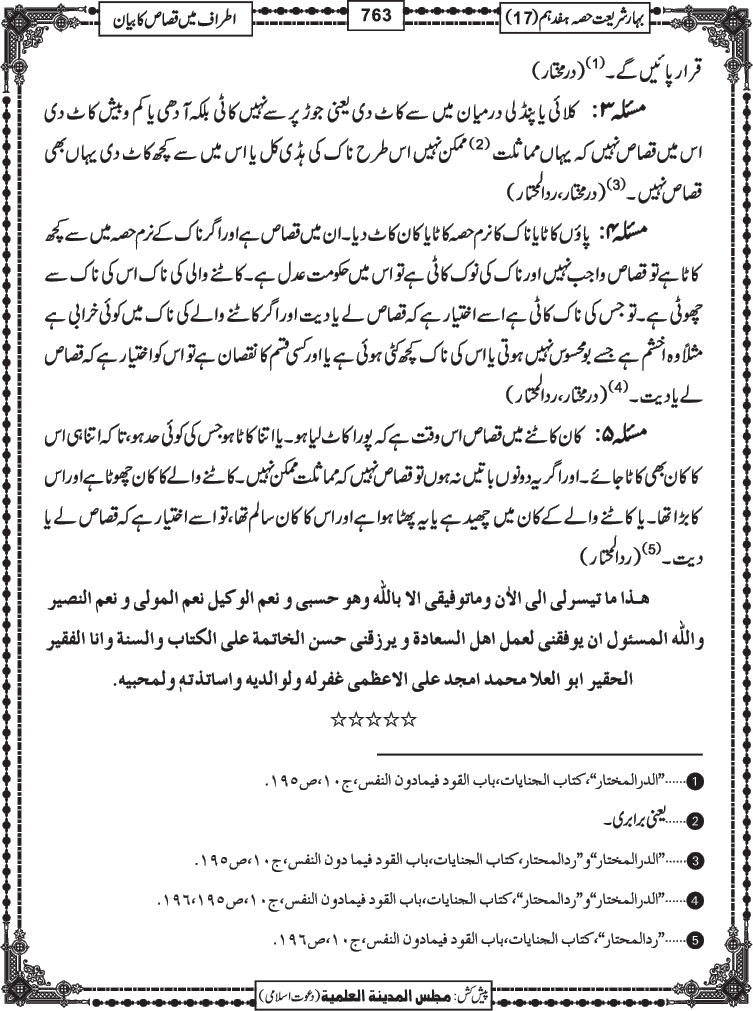 بہارِ شریعت حصہ ہفدہم (17)
763
اطراف میں قصاص کا بیان
قرار پائیں گے۔(1) (درمختار)
مسئلہ ۳: کلائی یا پنڈلی درمیان میں سے کاٹ دی یعنی جوڑ پر سے نہیں کاٹی بلکہ آدھی یا کم و بیش کاٹ دی
اس میں قصاص نہیں کہ یہاں مماثلت(2) ممکن نہیں اس طرح ناک کی ہڈی کل یا اس میں سے کچھ کاٹ دی یہاں بھی
قصاص نہیں۔(3) (درمختار، ردالمحتار)
مسئلہ ۴: پاؤں کاٹا یا ناک کا نرم حصہ کاٹا یا کان کاٹ دیا۔ ان میں قصاص ہے اور اگر ناک کے نرم حصہ میں سے کچھ
کاٹا ہے تو قصاص واجب نہیں اور ناک کی نوک کاٹی ہے تو اس میں حکومت عدل ہے۔ کاٹنے والی کی ناک اس کی ناک سے
چھوٹی ہے۔ تو جس کی ناک کاٹی ہے اسے اختیار ہے کہ قصاص لے یا دیت اور اگر کاٹنے والے کی ناک میں کوئی خرابی ہے
مثلاً وہ اخشم ہے جسے بو محسوس نہیں ہوتی یا اس کی ناک کچھ کٹی ہوئی ہے یا اور کسی قسم کا نقصان ہے تو اس کو اختیار ہے کہ قصاص
لے یا دیت۔(4) (درمختار، ردالمحتار)
مسئلہ ۵: کان کاٹنے میں قصاص اس وقت ہے کہ پورا کاٹ لیا ہو۔ یا اتنا کاٹا ہو جس کی کوئی حد ہو، تاکہ اتنا ہی اس
کا کان بھی کاٹا جائے۔ اور اگر یہ دونوں باتیں نہ ہوں تو قصاص نہیں کہ مماثلت ممکن نہیں۔ کاٹنے والے کا کان چھوٹا ہے اور اس
کا بڑا تھا۔ یا کاٹنے والے کے کان میں چھید ہے یا یہ پھٹا ہوا ہے اور اس کا کان سالم تھا، تو اسے اختیار ہے کہ قصاص لے یا
دیت۔(5) (ردالمحتار)
هـذا ما تیسرلی الی الاٰن وماتوفیقی الا باللّٰه وهو حسبی و نعم الوکیل نعم المولی و نعم النصیر
واللّٰه المسئول ان یوفقنی لعمل اهل السعادة و یرزقنی حسن الخاتمة علی الکتاب والسنة وانا الفقیر
الحقیر ابو العلا محمد امجد علی الاعظمی غفرله ولوالدیه واساتذتهٖ ولمحبیه.
☆☆☆☆☆
1......"الدرالمختار"، کتاب الجنایات، باب القود فیمادون النفس، ج۱۰، ص۱۹۵.
2......یعنی برابری۔
3......"الدرالمختار" و "ردالمحتار، کتاب الجنایات، باب القود فیما دون النفس، ج۱۰، ص۱۹۵.
4......"الدرالمختار" و "ردالمحتار"، کتاب الجنایات، باب القود فیمادون النفس، ج۱۰، ص۱۹۵، ۱۹۶.
5......"ردالمحتار"، کتاب الجنایات، باب القود فیمادون النفس، ج۱۰، ص۱۹۶.
پیش کش: مجلس المدينة العلمية (دعوت اسلامی)